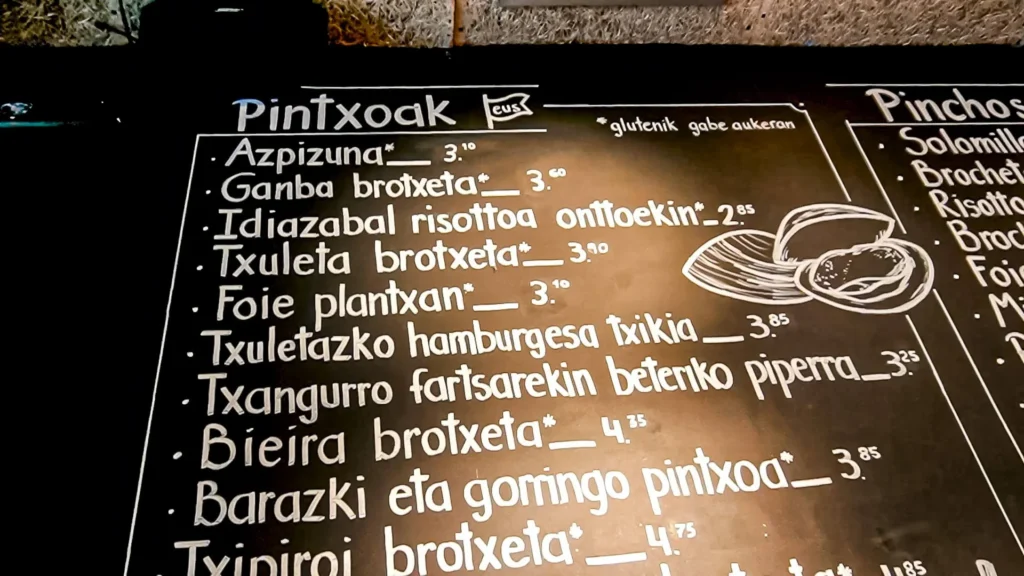 Pintxoak eus
*glutenik gabe aukeran
· Azpizuna*__ 3.10
· Ganba brotxeta*__ 3.60
· Idiazabal risottoa onttoekin*_2.85
· Txuleta brotxeta*__ 3.90
· Foie plantxan*__ 3.10
· Txuletazko hamburgesa txikia __3.85
· Txangurro fartsarekin beteriko piperra__3.25
· Bieira brotxeta*__4.35
· Barazki eta gorringo pintxoa*__3.85
Txipiroi brotxeta*__4.75
4.85
Pinchos
· Solomill
· Brochet
· Risotto
· Broc
· Foi
· M